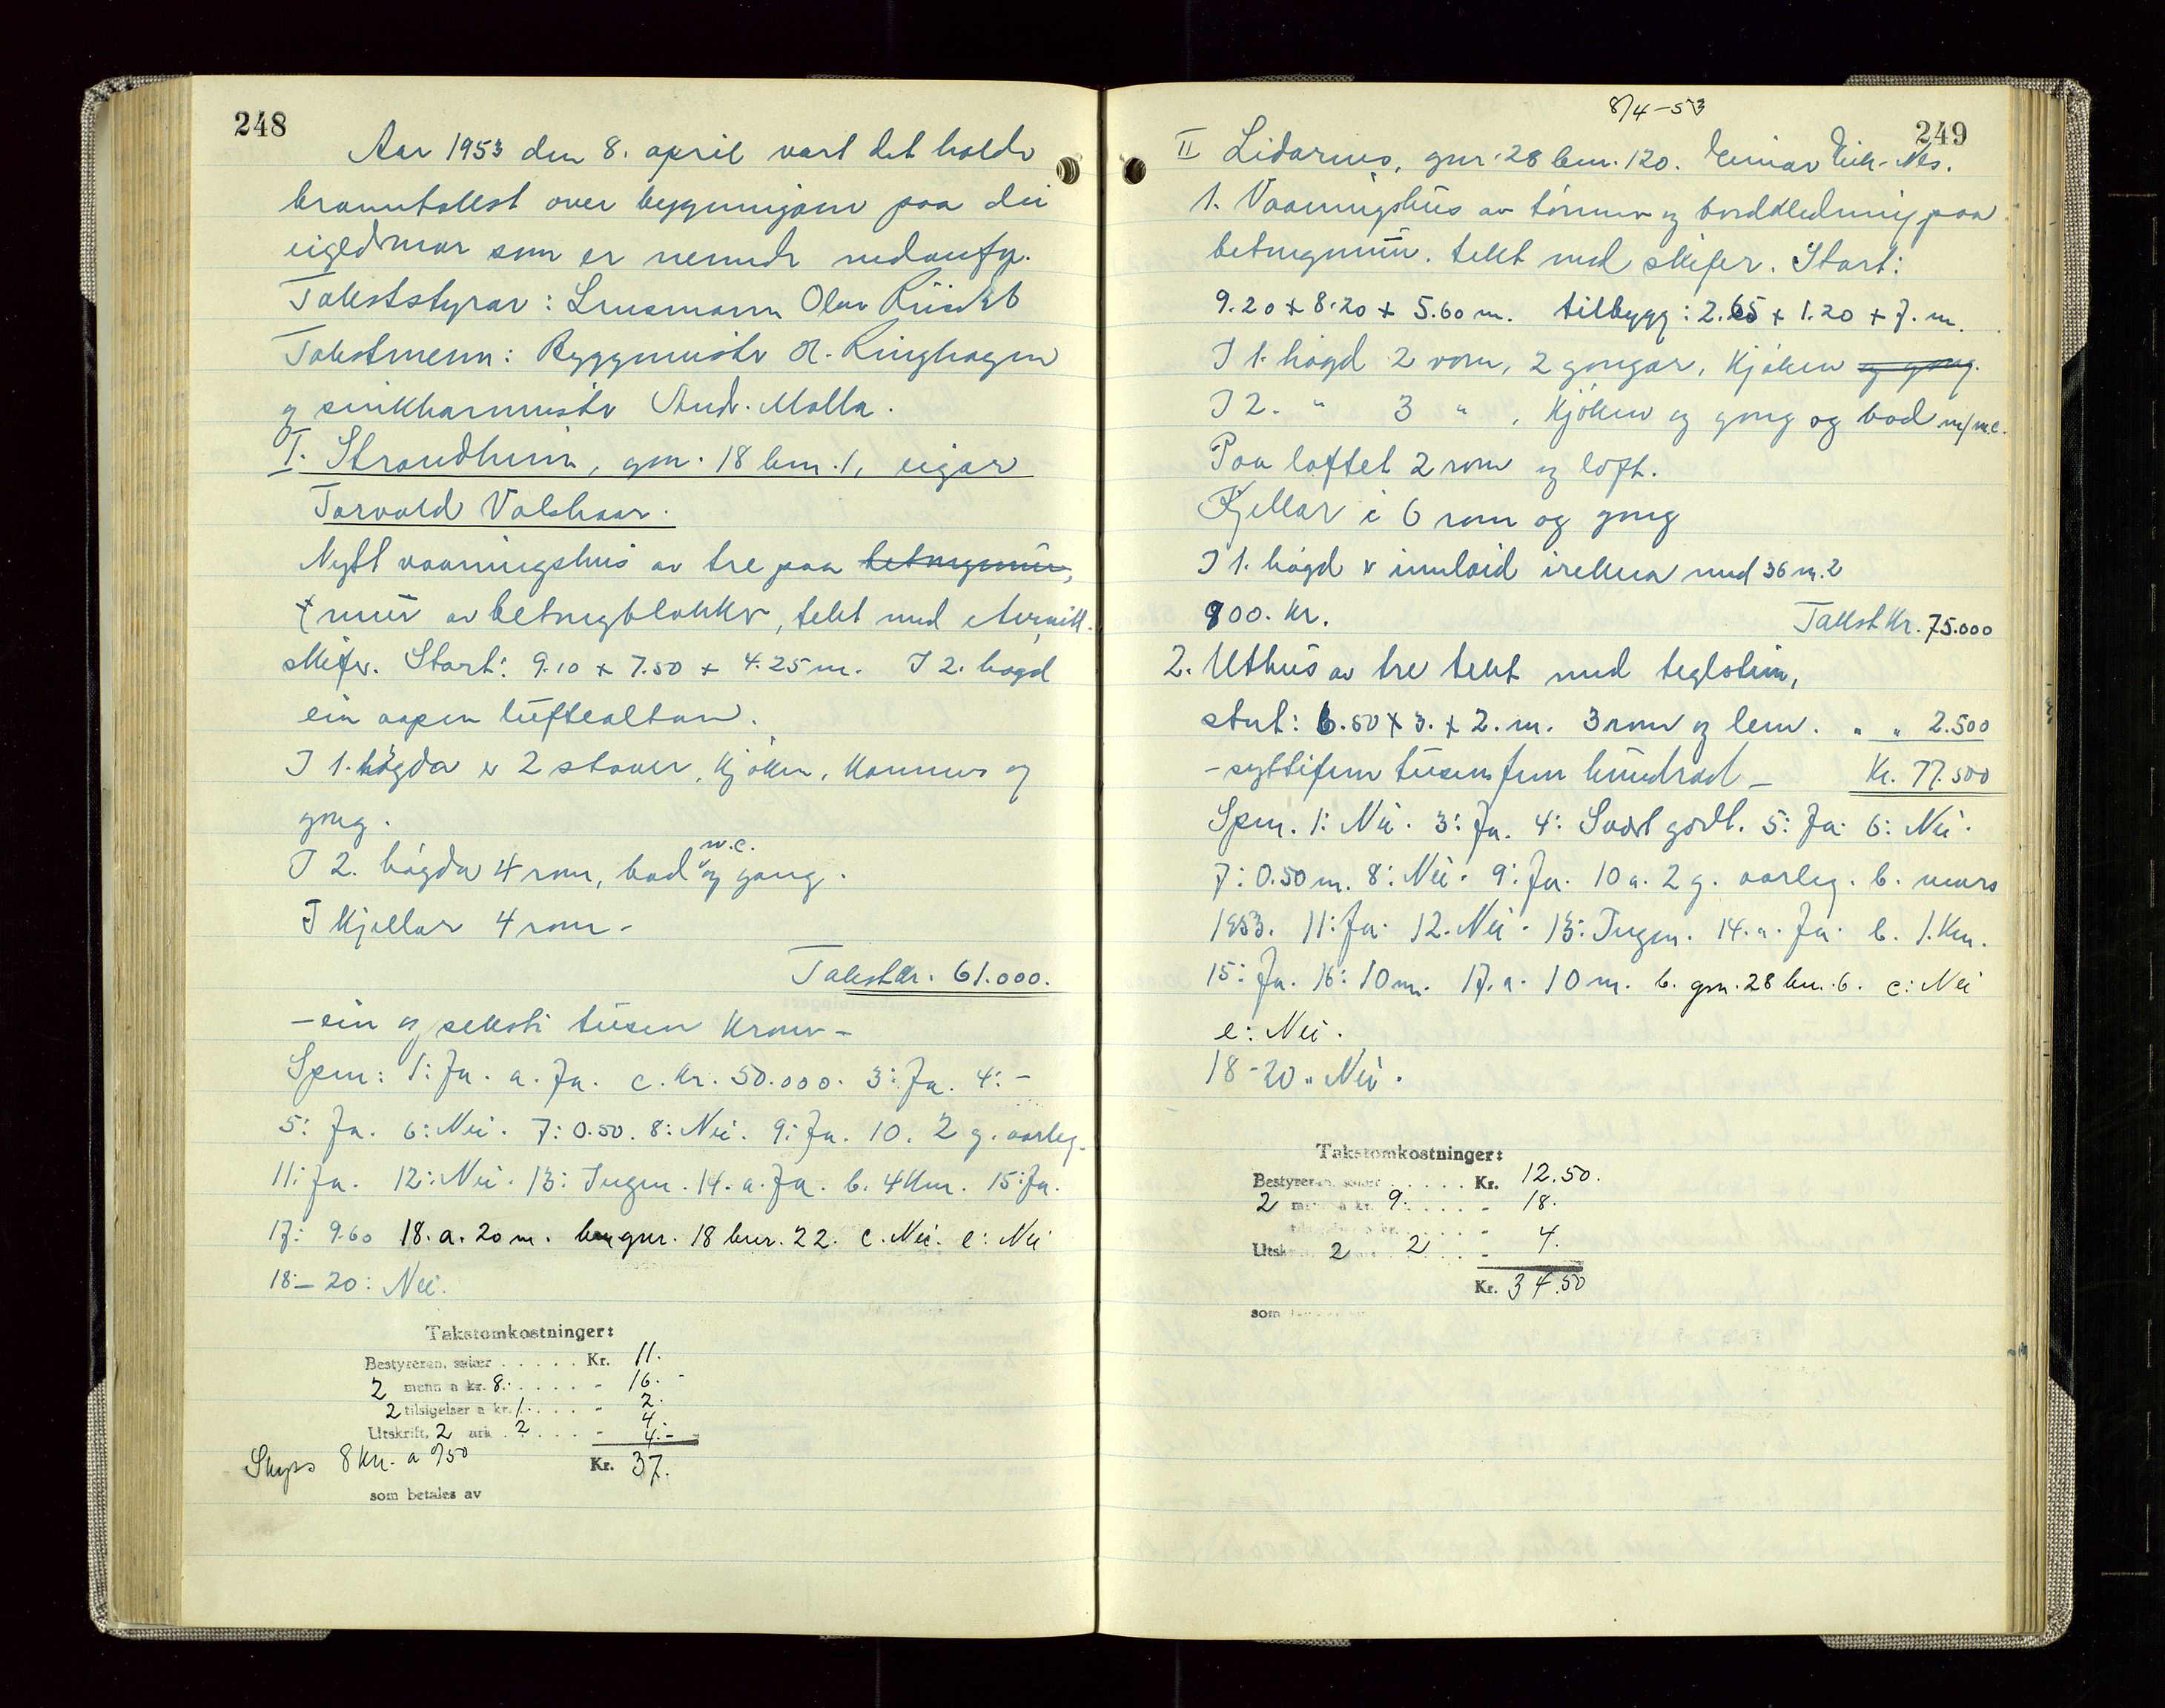 248
Aar 1953 den 8. april vart det halde
branntakst over bygningane paa dei
eigedomar som er nemnde nedanfyr.
Takststyrar: Lensmann Olav
Takstmenn: Byggmeister O. Ringhagen
og sinkharmeister And. Molla.
I. Strandheim, gnr. 18 bnr. 1, eigar
Torvald Valskaar.
Nytt vaaningshus av tre paa betongmur,
mur av betongblokker, tekt med eternitt
skifer. Start: 9.10 x 7.50 x 4.25 m. I 2. høgd
ein aapen luftealtan.
I 1. høgda er 2 stover, kjøken, kammers og
gong.
I 2. høgda 4 rom, bad w.c. og gong.
I kjellar 4 rom.
Takst kr. 61.000.
- ein og seksti tusen kroner -
Spm: 1: Ja. a. Ja. c. kr. 50.000. 3: Ja. 4: -
5: Ja. 6: Nei. 7: 0.50. 8: Nei. 9: Ja. 10. 2 g. aarleg.
11: Ja. 12: Nei. 13: Ingen. 14. a. Ja. b. 4 km. 15: Ja.
17: 9.60 18. a. 20 m. b. gnr. 18 bnr. 22. c. Nei. e: Nei
18 - 20: Nei.
Takstomkostninger:
Bestyreren, salær ..... Kr. 11.
2 menn a kr. 8. ..... - 16. -
2 tilsigelser a kr. 1. .... - 2.
4.
Utskrift, 2 ark . 2 .... - 4.-
Skyss 8 km. a 0,50 Kr. 37.
som betales av
8/4 - 53
249
II Lidarnes, gnr. 28 bnr. 120. Einar Nes.
1. Vaaningshus av tømmer og bordkledning paa
betongmur. tekt med skifer. Start:
9.20 x 8.20 x 5.60 m. tilbygg: 2.65 x 1.20 x 7. m.
I 1. høgd 2 rom, 2 gongar, kjøken og gong.
I 2. " 3 " , kjøken og gong og bad m/w.c.
Paa loftet 2 rom og loft.
Kjellar i 6 rom og gong
I 1. høgd er innlaid med 36 m.2
800. kr. Takst kr. 75.000
2. Uthus av tre tekt med teglstein,
stort: 6.50 x 3. x 2. m. 3 rom og lem. " " 2.500
- syttifem tusen fem hundrad - Kr. 77.500
Spm. 1: Nei. 3: Ja. 4: Svært godt. 5: Ja. 6: Nei.
7: 0.50 m. 8: Nei. 9: Ja. 10 a. 2 g. aarleg. b. mars
1953. 11: Ja. 12. Nei. 13: Ingen. 14. a. Ja. b. 1. km.
15: Ja. 16: 10 m. 17. a. 10 m. b. gnr. 28 bnr. 6. c: Nei
e: Nei.
18 - 20. Nei.
Takstomkostninger:
Bestyreren, salær ..... Kr. 12.50.
2 menn a kr. 9. .... - 18.
tilsigelser a kr. -
Utskrift 2 2 .... - 4.
Kr. 34.50
som